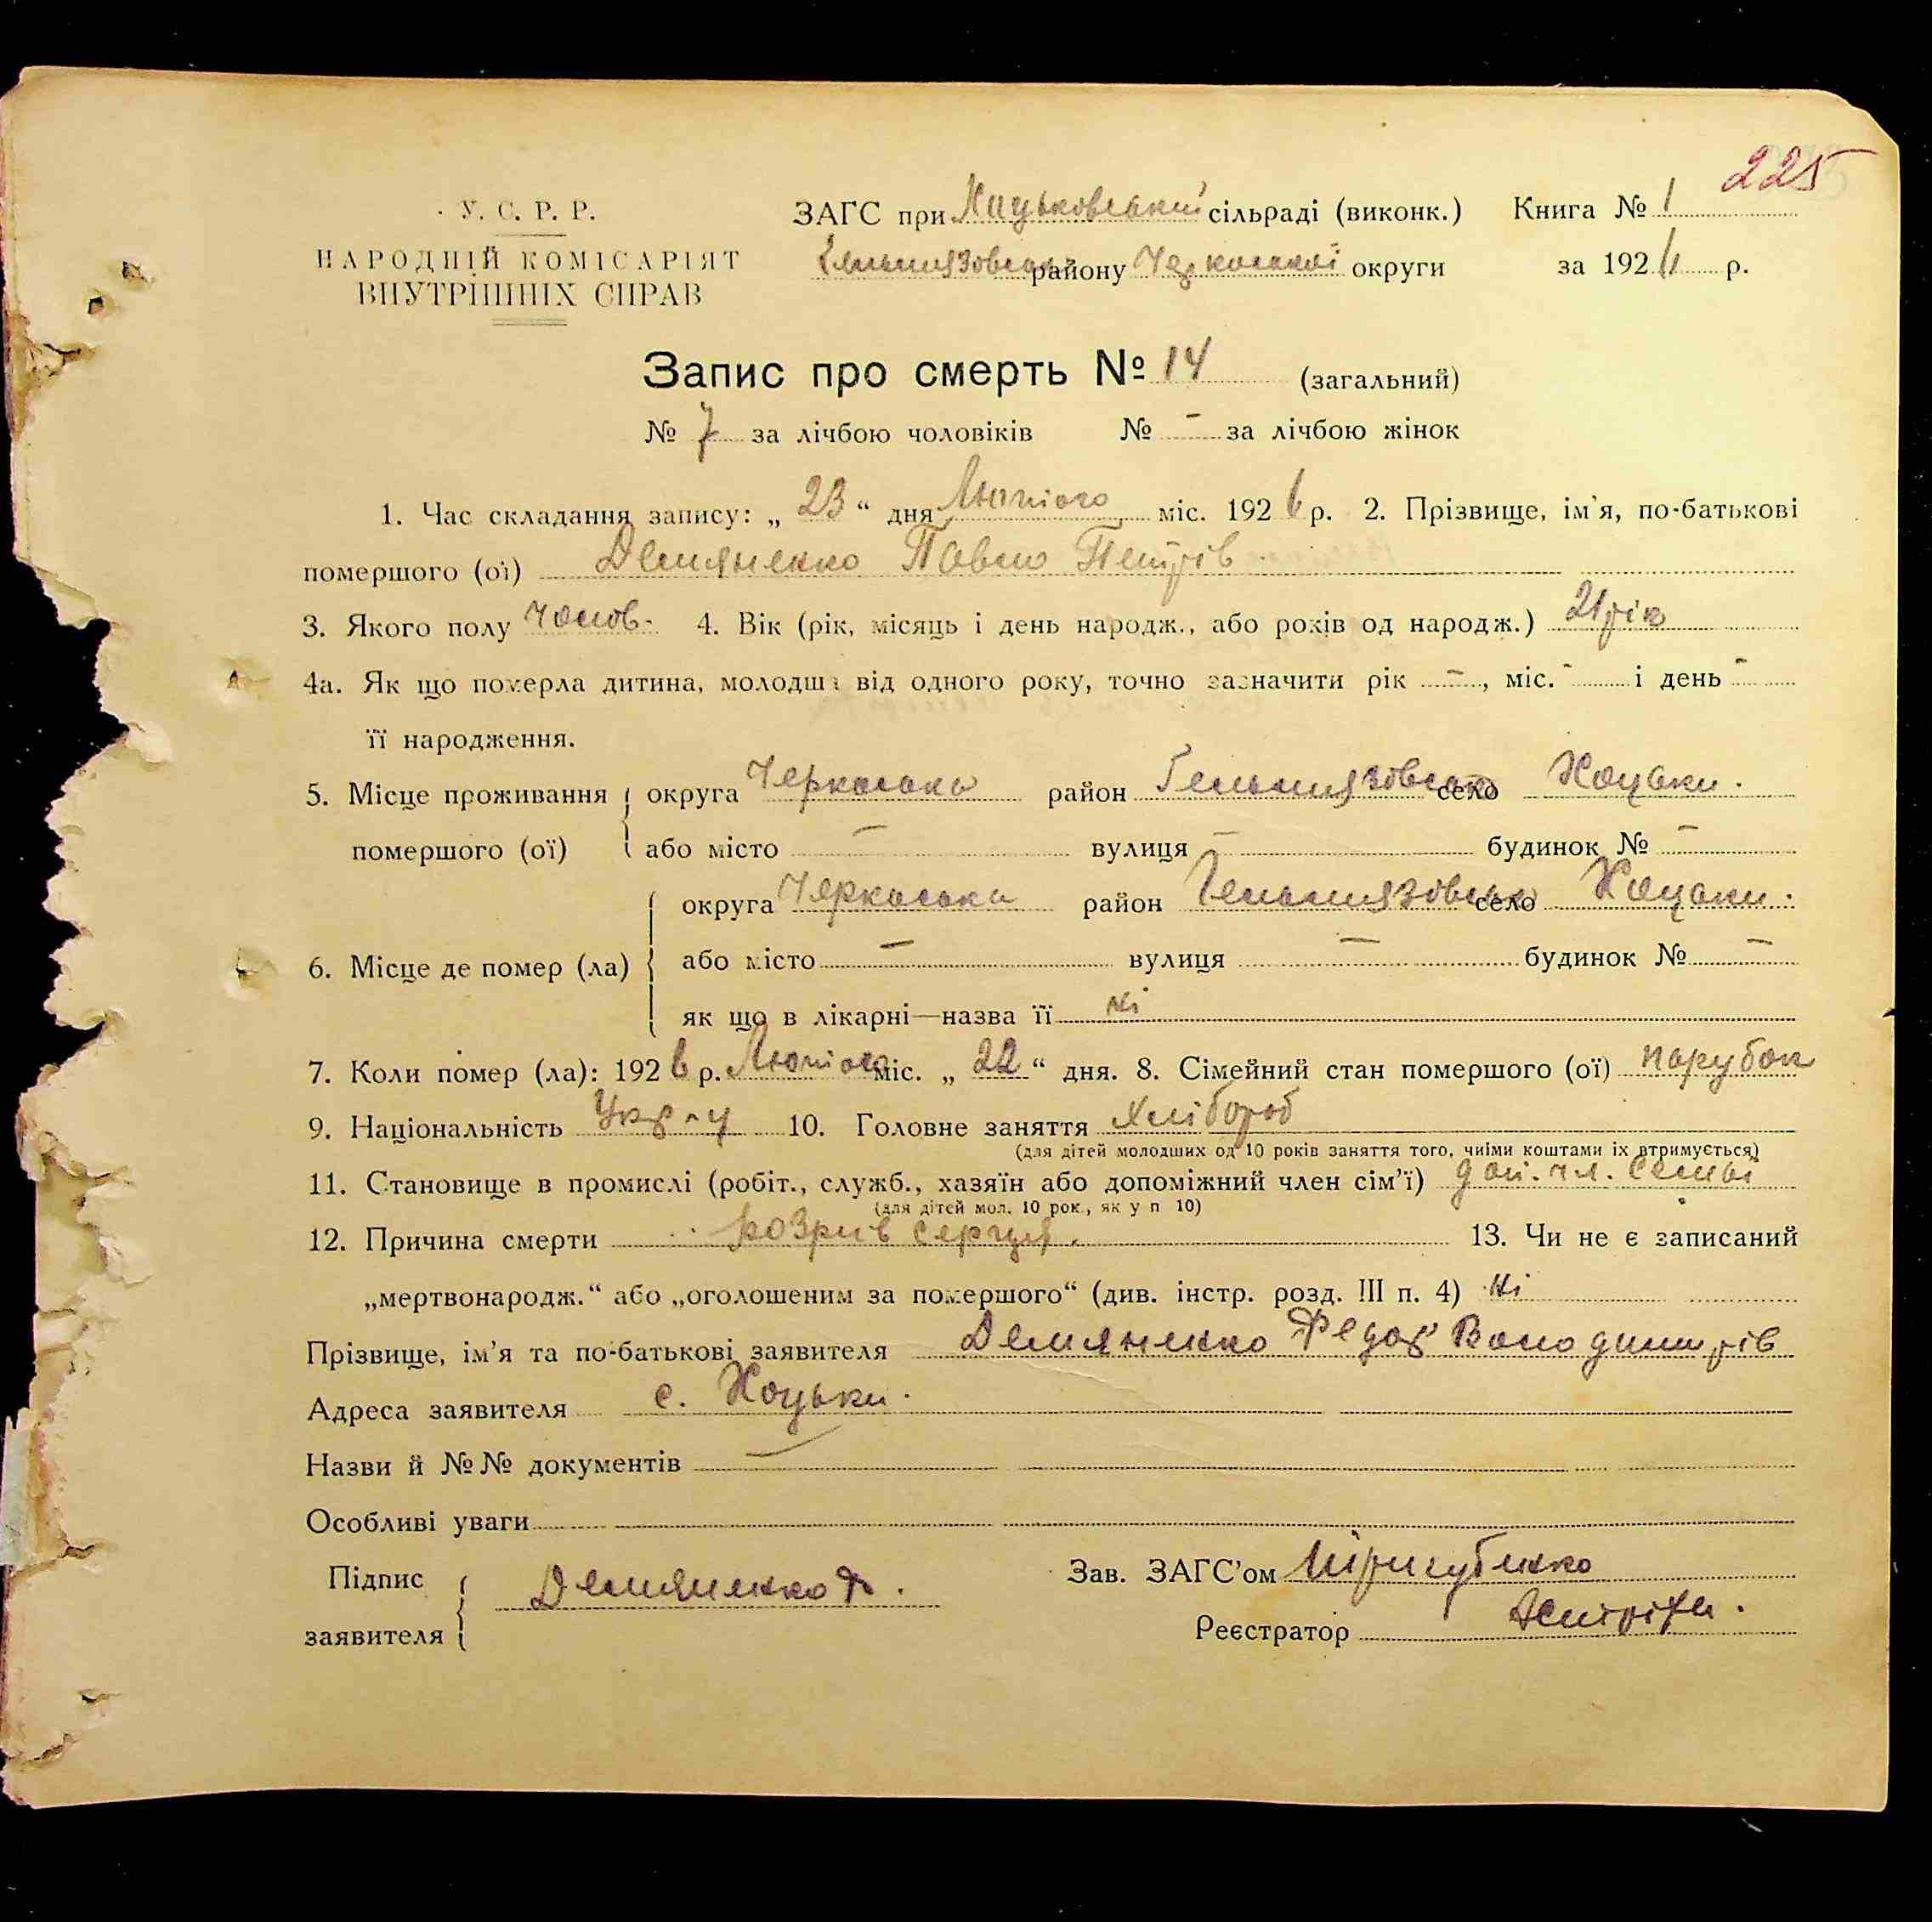 225
У. С. Р. Р.
НАРОДНІЙ КОМІСАРІЯТ
ВНУТРІШНІХ СПРАВ
ЗАГС при Хацьковській сільраді (виконк.) Книга № 1
Гельмязівськ району Черкаської округи за 1926 р.
Запис про смерть № 14 (загальний)
№ 7 за лічбою чоловіків № - за лічбою жінок
1. Час складання запису: „ 23 “ дня Лютого міс. 1926 р. 2. Прізвище, ім'я, по-батькові
помершого (ої) Демяненко Павло Петрів
3. Якого полу Чолов. 4. Вік (рік, місяць і день народж., або років од народж.) 21 рік
4а. Як що померла дитина, молодша від одного року, точно зазначити рік -, міс. - і день -
її народження.
5. Місце проживання округа Черкаська район Гельмязівська село Хоцьки.
помершого (ої) або місто - вулиця - будинок № -
округа Черкаська район Гельмязівська село Хоцьки.
6. Місце де помер (ла) або місто - вулиця - будинок № -
як що в лікарні—назва її ні
7. Коли помер (ла): 1926 р. Лютого міс. „ 22 “ дня. 8. Сімейний стан помершого (ої) парубок
9. Національність Укр-ц 10. Головне заняття Хлібороб
(для дітей молодших од 10 років заняття того, чиїми коштами їх втримується)
11. Становище в промислі (робіт., служб., хазяїн або допоміжний член сім'ї) доп. чл. семьі
(для дітей мол. 10 рок., як у п 10)
12. Причина смерти розрив серця. 13. Чи не є записаний
„мертвонародж.“ або „оголошеним за помершого“ (див. інстр. розд. III п. 4) ні
Прізвище, ім'я та по-батькові заявителя Демяненко Федор Володимирів
Адреса заявителя с. Хоцьки.
Назви й №№ документів —
Особливі уваги
Підпис Демяненко Ф. Зав. ЗАГС'ом
заявителя Реєстратор